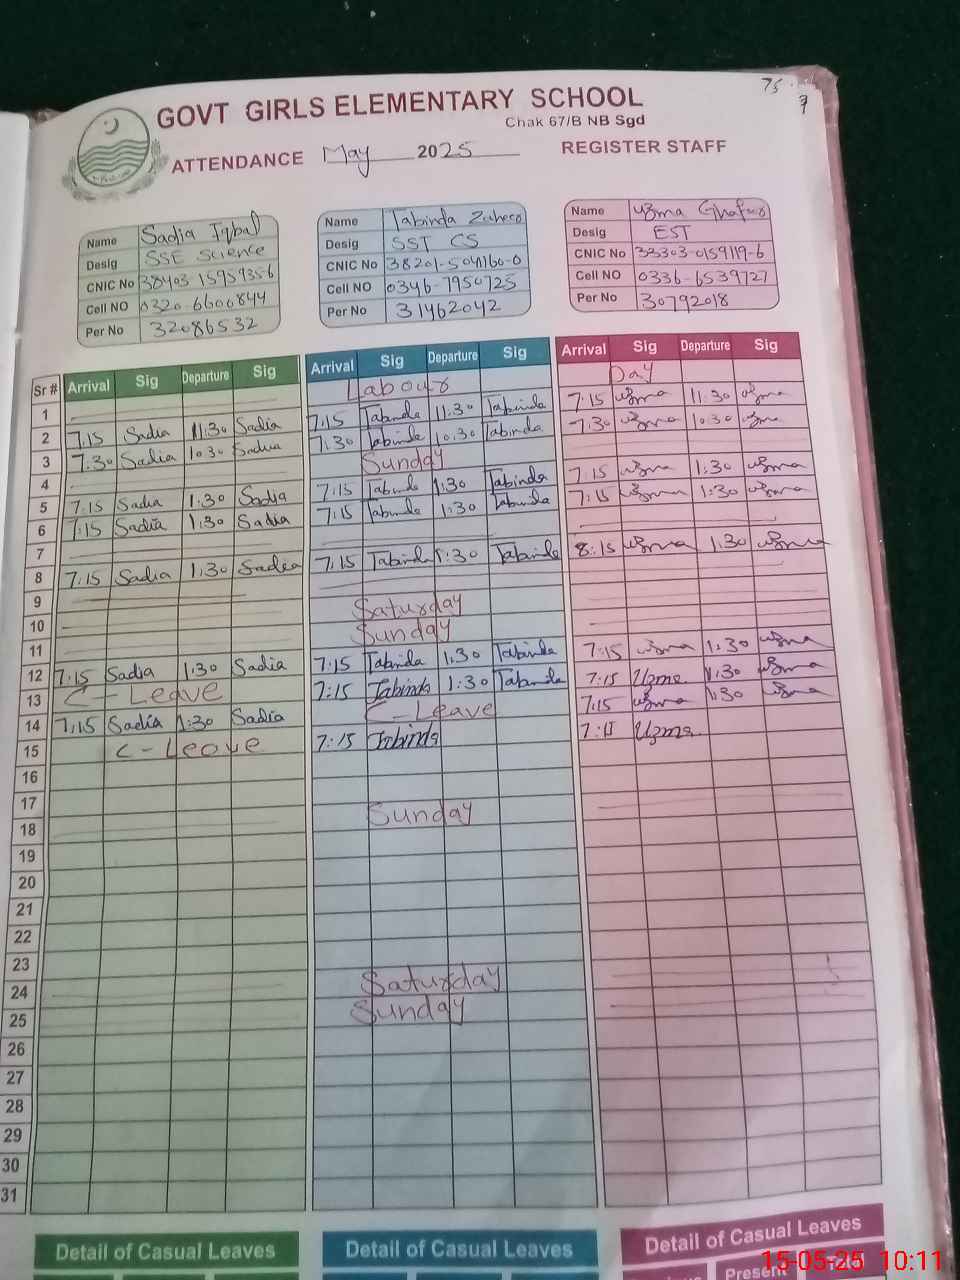 75
GOVT GIRLS ELEMENTARY SCHOOL
Chak 67/B NB Sgd
ATTENDANCE May 2025 REGISTER STAFF
Name Sadia Iqbal
Desig SSE Science
CNIC No 38403 1595935-6
Cell NO 0320-6600844
Per No 32086532
Name Tabinda
Desig SST CS
CNIC No
Cell NO 0346-7950725
Per No 31462042
Name Uzma Ghafoor
Desig EST
CNIC No 33303-0159119-6
Cell NO 0336-6539727
Per No 30792018
Sr # Arrival Sig Departure Sig Arrival Sig Departure Sig Arrival Sig Departure Sig
1 Labour Day
2 7:15 Sadia 11:30 Sadia 7:15 Tabinda 11:30 Tabinda 7:15 Uzma 11:30 Uzma
3 7:30 Sadia 10:30 Sadia 7:30 Tabinda 10:30 Tabinda 7:30 Uzma 10:30 Uzma
4 Sunday
5 7:15 Sadia 1:30 Sadia 7:15 Tabinda 1:30 Tabinda 7:15 Uzma 1:30 Uzma
6 7:15 Sadia 1:30 Sadia 7:15 Tabinda 1:30 Tabinda 7:15 Uzma 1:30 Uzma
7
8 7:15 Sadia 1:30 Sadia 7:15 Tabinda 1:30 Tabinda 8:15 Uzma 1:30 Uzma
9
10 Saturday
11 Sunday
12 7:15 Sadia 1:30 Sadia 7:15 Tabinda 1:30 Tabinda 7:15 Uzma 1:30 Uzma
13 C-Leave 7:15 Tabinda 1:30 Tabinda 7:15 Uzma 1:30 Uzma
14 7:15 Sadia 1:30 Sadia C-Leave 7:15 Uzma 1:30 Uzma
15 C-Leave 7:15 Tabinda 7:15 Uzma
16
17
18 Sunday
19
20
21
22
23
24 Saturday
25 Sunday
26
27
28
29
30
31
Detail of Casual Leaves Detail of Casual Leaves Detail of Casual Leaves
Present
15-05-25 10:11